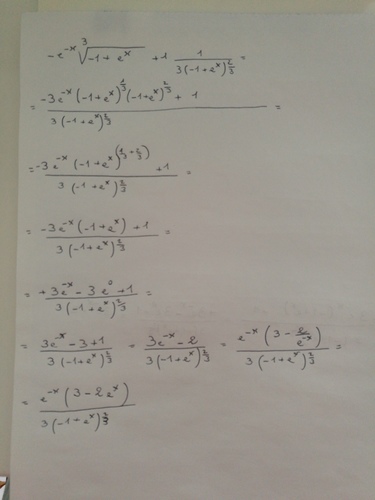 -e^{-x} \sqrt[3]{-1+e^x} + 1 \frac{1}{3(-1+e^x)^{\frac{2}{3}}} =
= \frac{-3e^{-x}(-1+e^x)^{\frac{1}{3}}(-1+e^x)^{\frac{2}{3}} + 1}{3(-1+e^x)^{\frac{2}{3}}} =
= \frac{-3e^{-x}(-1+e^x)^{(\frac{1}{3}+\frac{2}{3})} + 1}{3(-1+e^x)^{\frac{2}{3}}} =
= \frac{-3e^{-x}(-1+e^x)+1}{3(-1+e^x)^{\frac{2}{3}}} =
= \frac{+3e^{-x}-3e^0+1}{3(-1+e^x)^{\frac{2}{3}}} =
= \frac{3e^{-x}-3+1}{3(-1+e^x)^{\frac{2}{3}}} = \frac{3e^{-x}-2}{3(-1+e^x)^{\frac{2}{3}}} = \frac{e^{-x}(3-\frac{2}{e^{-x}})}{3(-1+e^x)^{\frac{2}{3}}} =
= \frac{e^{-x}(3-2e^x)}{3(-1+e^x)^{\frac{2}{3}}}